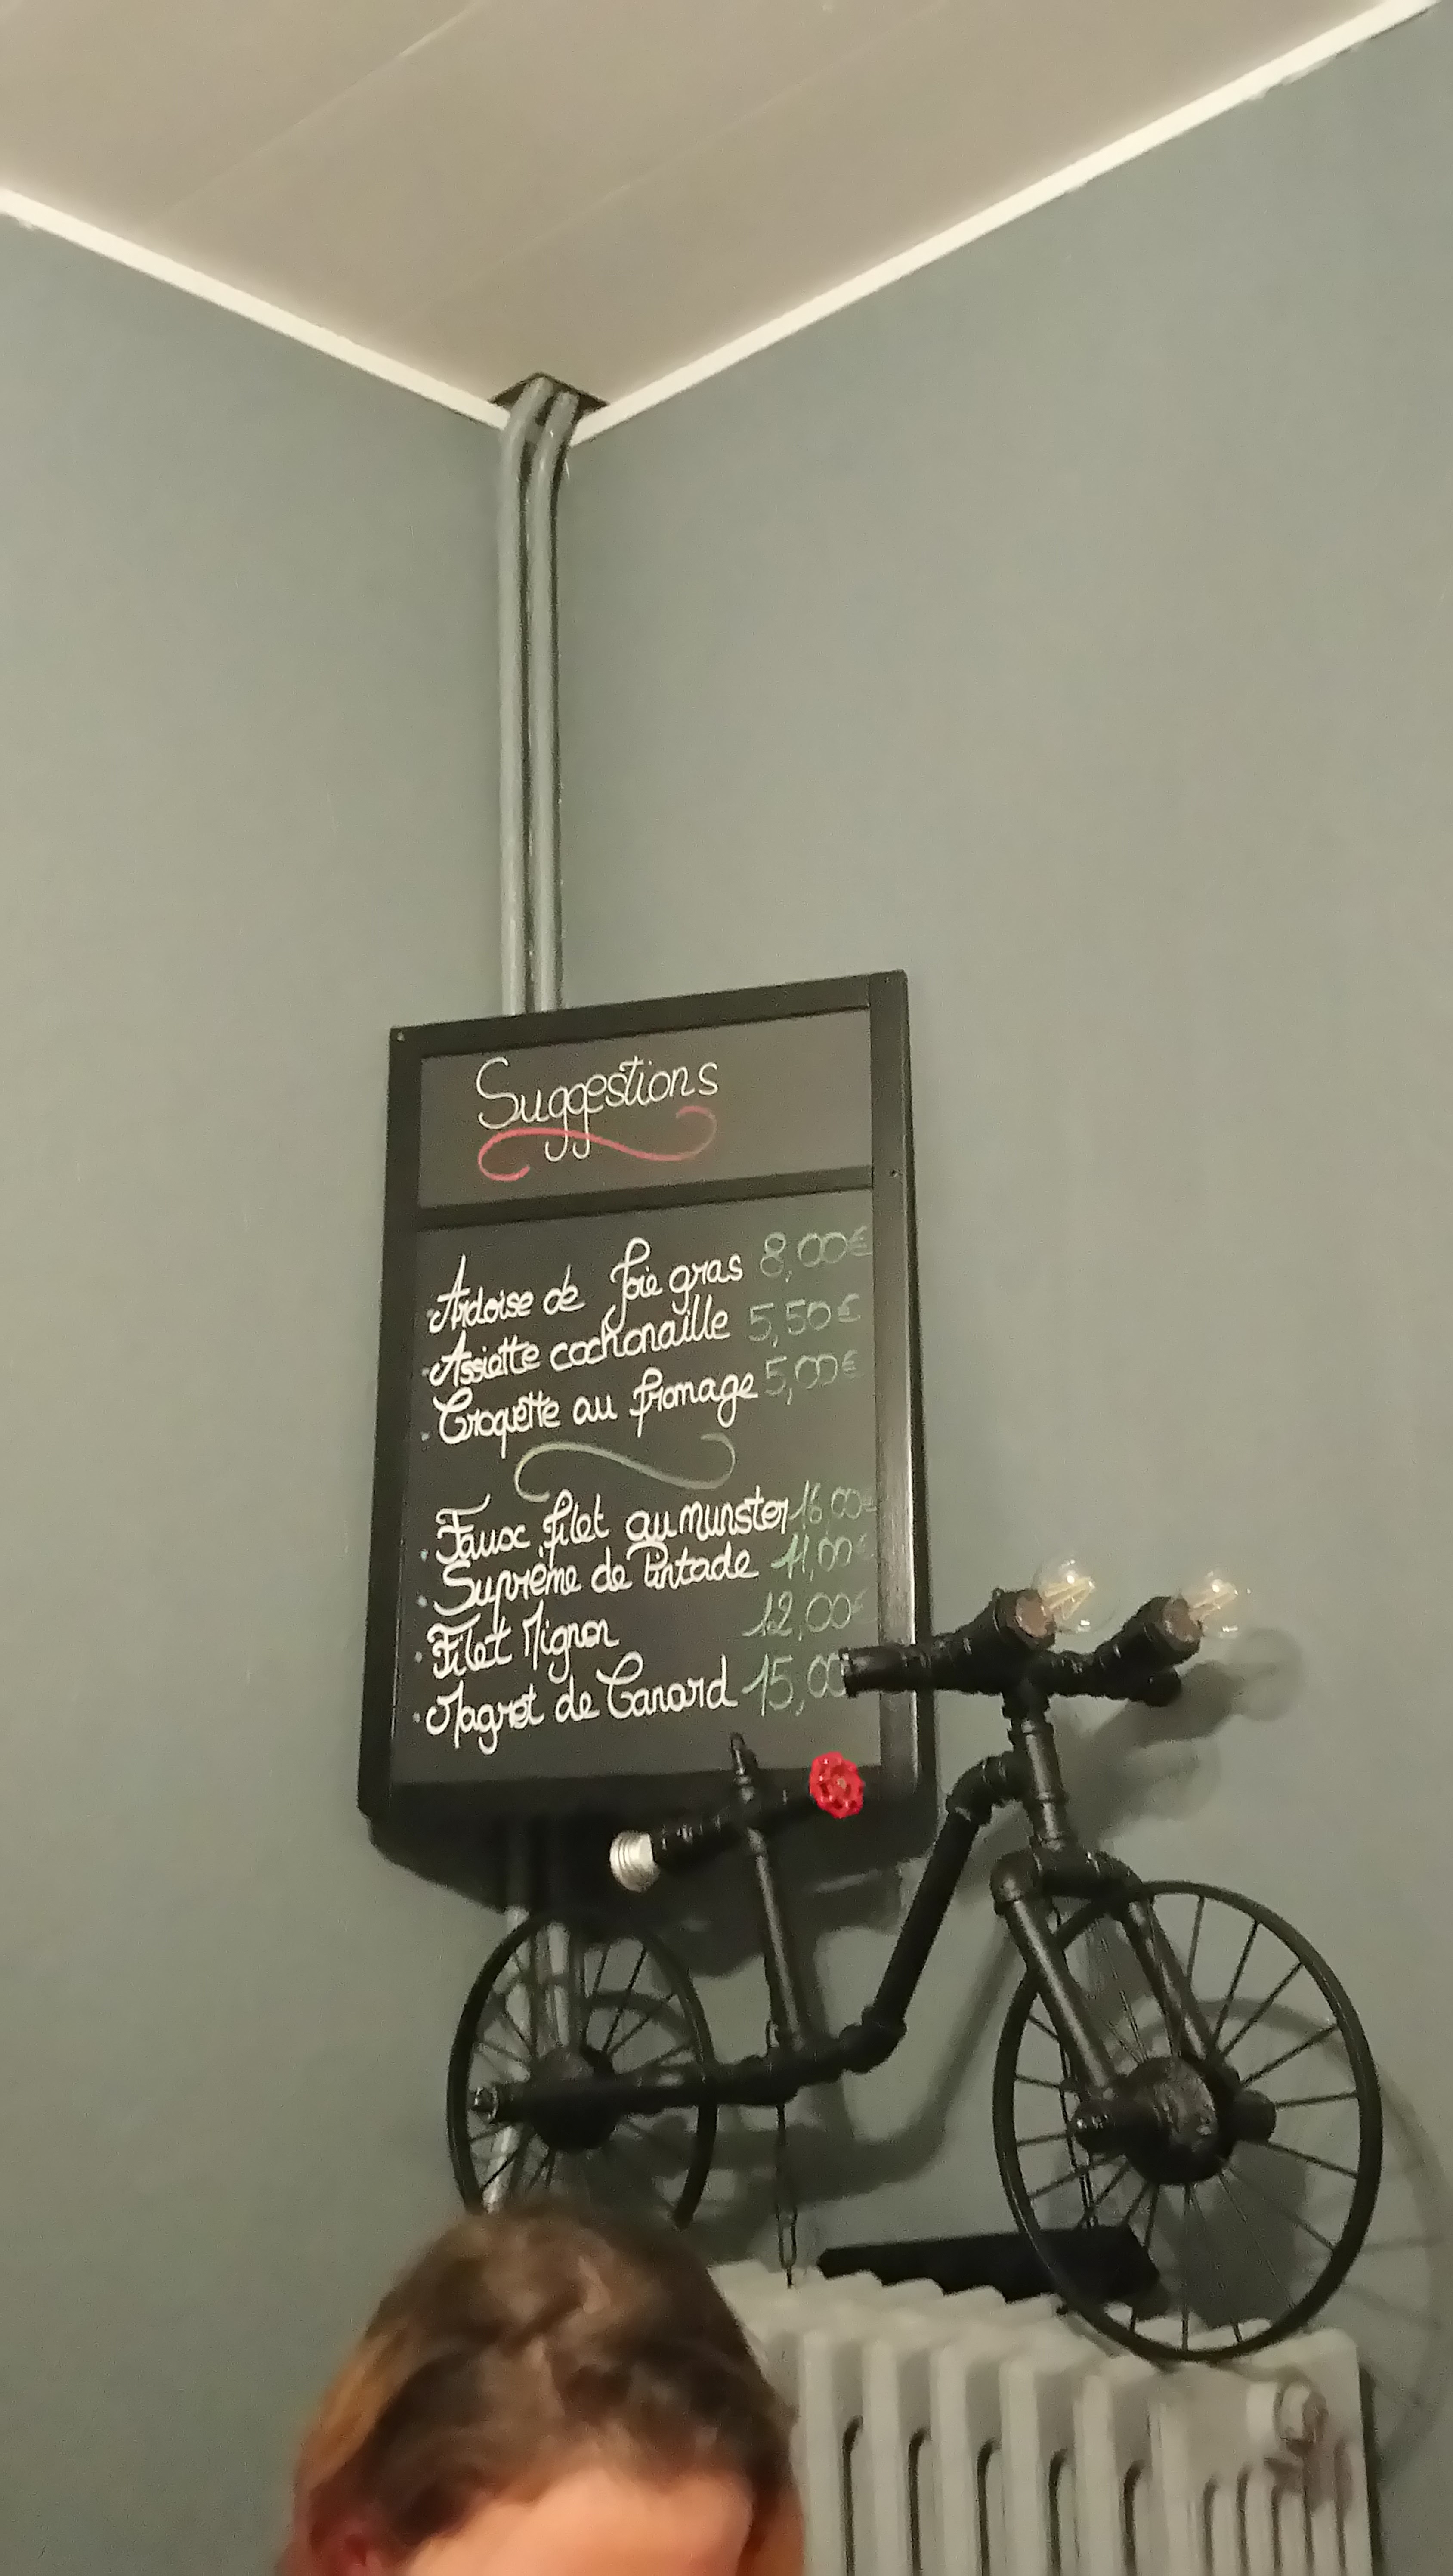 Suggestions
. Ardoise de foie gras 8,00€
. Assiette cochonaille 5,50€
. Croquette au fromage 5,00€
. Faux filet au munster 16,00€
. Suprème de Pintade 11,00€
. Filet Mignon 12,00€
. Magret de Canard 15,00